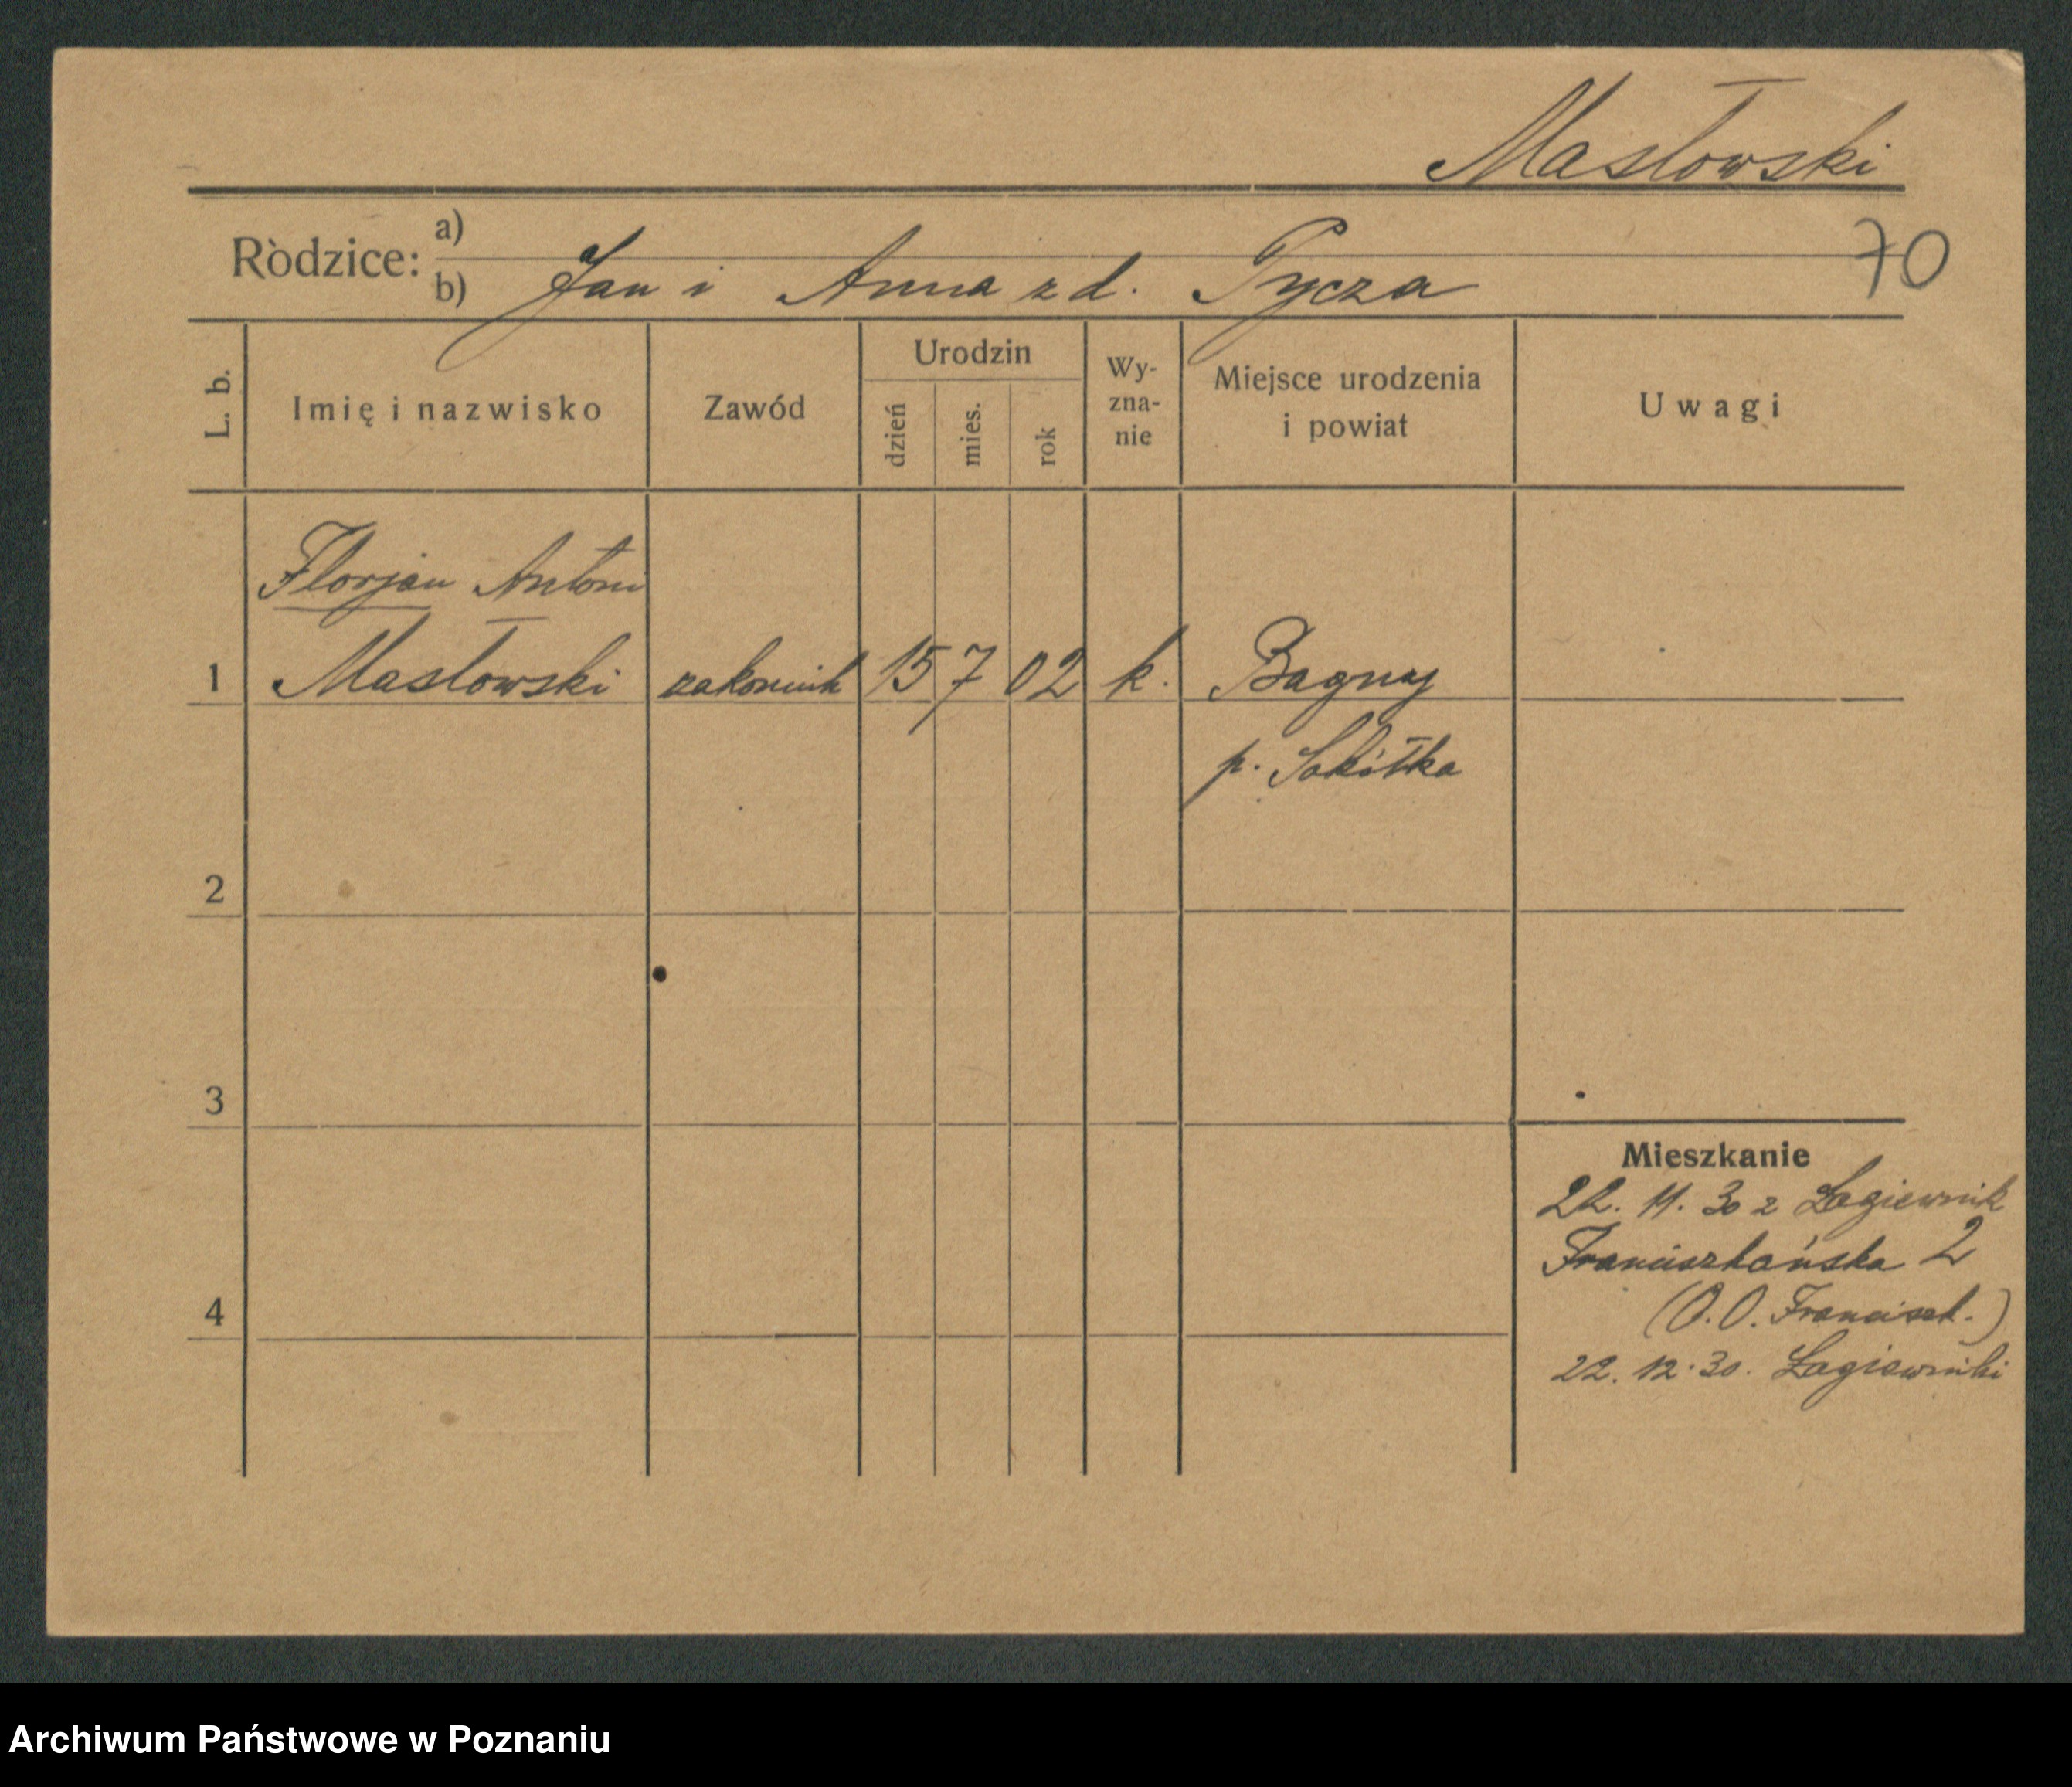 Masłowski
Rodzice: a)
b) Jan i Anna z d. Pycza
70
L. b.
Imię i nazwisko
Zawód
Urodzin
dzień
mies.
rok
Wy-
zna-
nie
Miejsce urodzenia
i powiat
Uwagi
Florjan Antoni
1 Masłowski zakonnik 15 7 02 k. Bagny
p. Sokółka
2
3
4
Mieszkanie
22. 11. 30 z Łagiewnik
Franciszkańska 2
(O.O. Franciszk.)
22. 12. 30. Łagiewniki
Archiwum Państwowe w Poznaniu